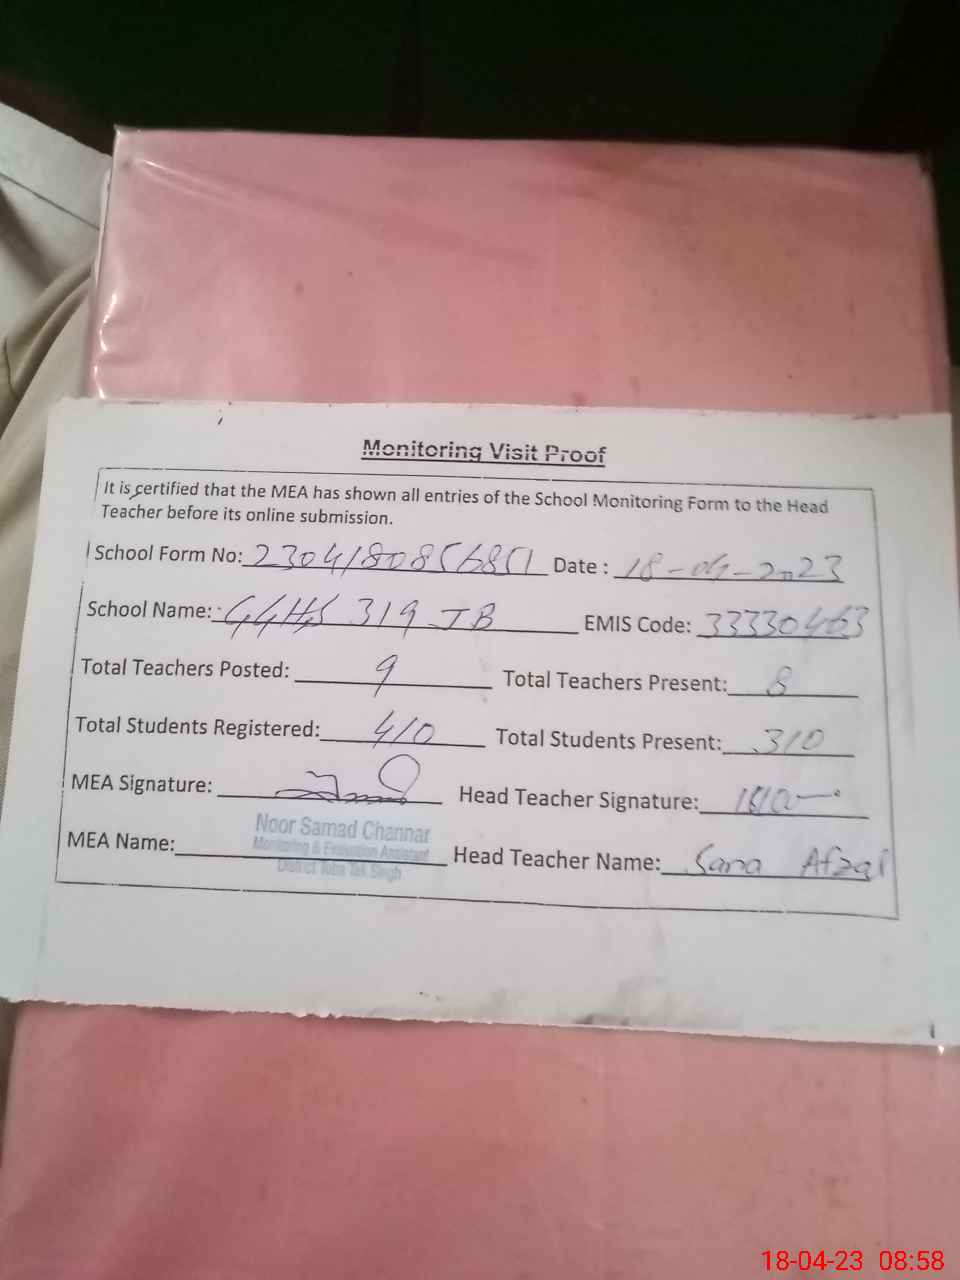 Monitoring Visit Proof
It is certified that the MEA has shown all entries of the School Monitoring Form to the Head
Teacher before its online submission.
School Form No: 2304180856851 Date : 18-04-2023
School Name: GGHS 319 JB EMIS Code: 33330463
Total Teachers Posted: 9 Total Teachers Present: 8
Total Students Registered: 410 Total Students Present: 310
MEA Signature: Head Teacher Signature:
Noor Samad Channar
Monitoring & Evaluation Assistant
District Toba Tek Singh
MEA Name: Head Teacher Name: Sana Afzal
18-04-23 08:58